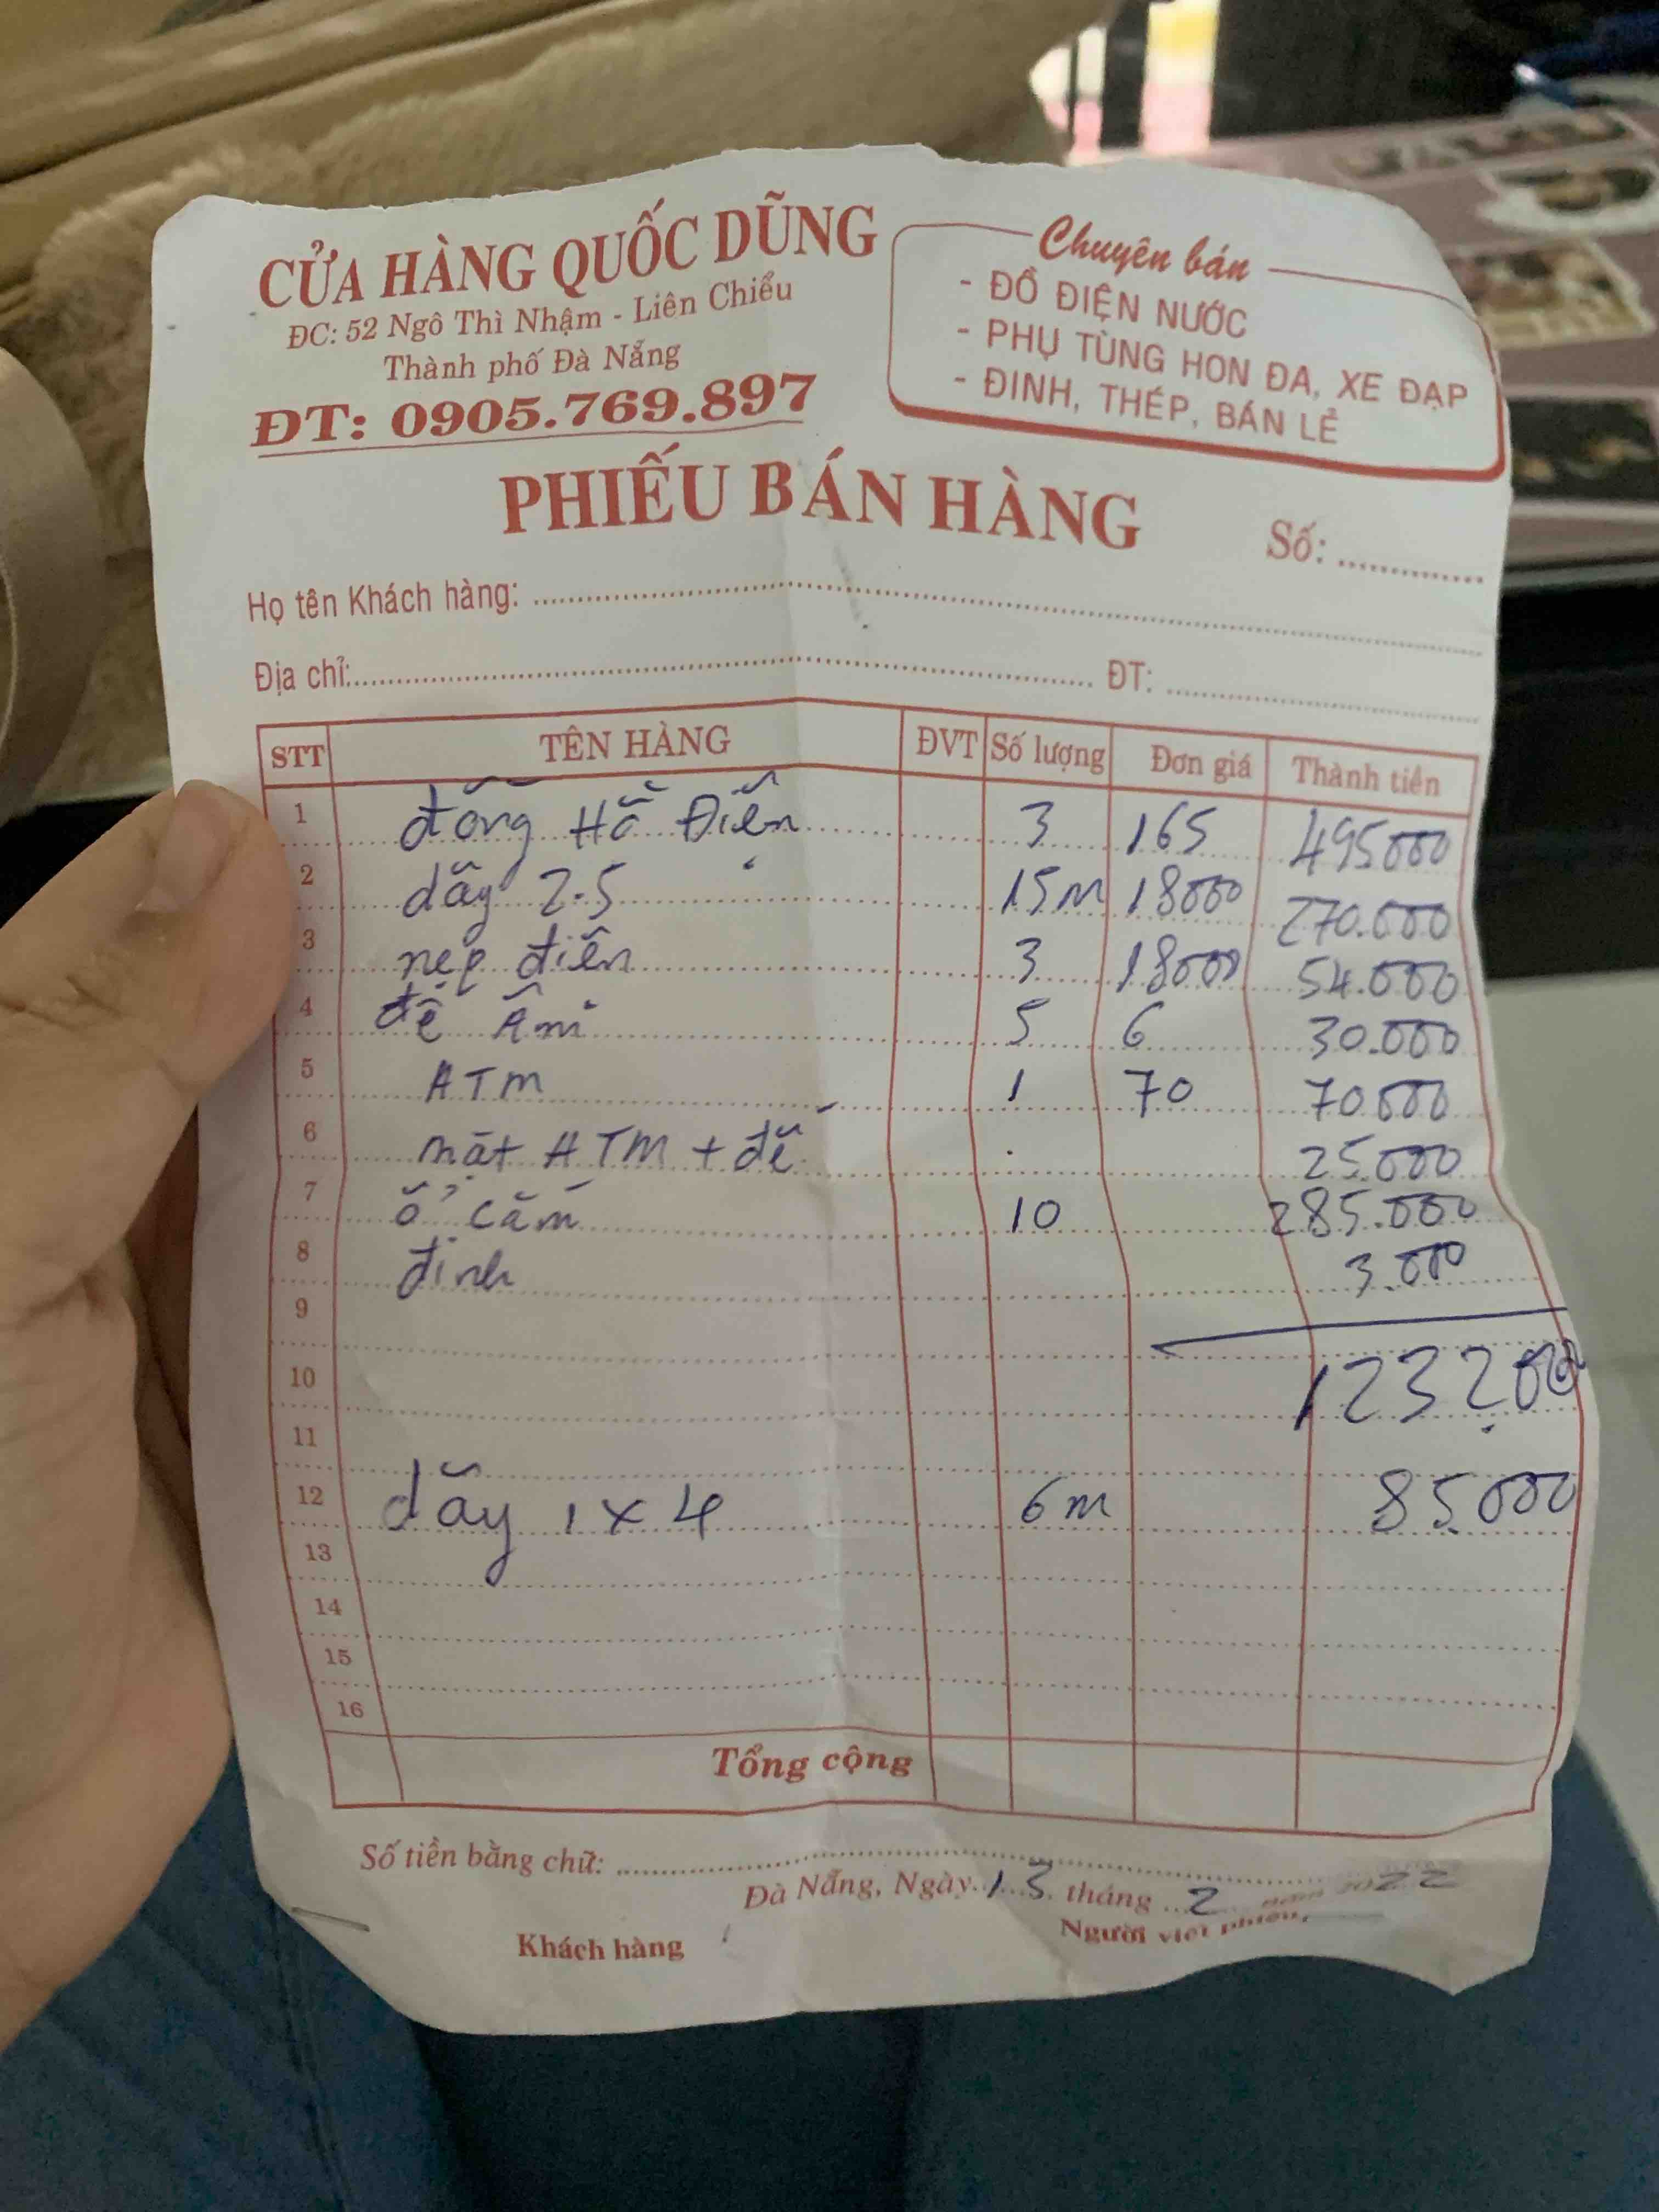 CỬA HÀNG QUỐC DŨNG
ĐC: 52 Ngô Thì Nhậm - Liên Chiểu
Thành phố Đà Nẵng
ĐT: 0905.769.897
Chuyên bán
- ĐỒ ĐIỆN NƯỚC
- PHỤ TÙNG HON ĐA, XE ĐẠP
- ĐINH, THÉP, BÁN LẺ
PHIẾU BÁN HÀNG
Số:
Họ tên Khách hàng:
Địa chỉ: ĐT:
STT TÊN HÀNG ĐVT Số lượng Đơn giá Thành tiền
1 đồng Hồ Điện 3 165 495000
2 dây 2.5 15m 18000 270.000
3 nẹp điện 3 18000 54.000
4 đế Âm 5 6 30.000
5 ATM 1 70 70000
6 mặt ATM + đế 25.000
7 ổ cắm 10 285.000
8 đinh 3.000
9
10 1232.000
11
12 dây 1 x 4 6m 85.000
13
14
15
16
Tổng cộng
Số tiền bằng chữ:
Đà Nẵng, Ngày 13 tháng 2 năm 2022
Khách hàng Người viết phiếu